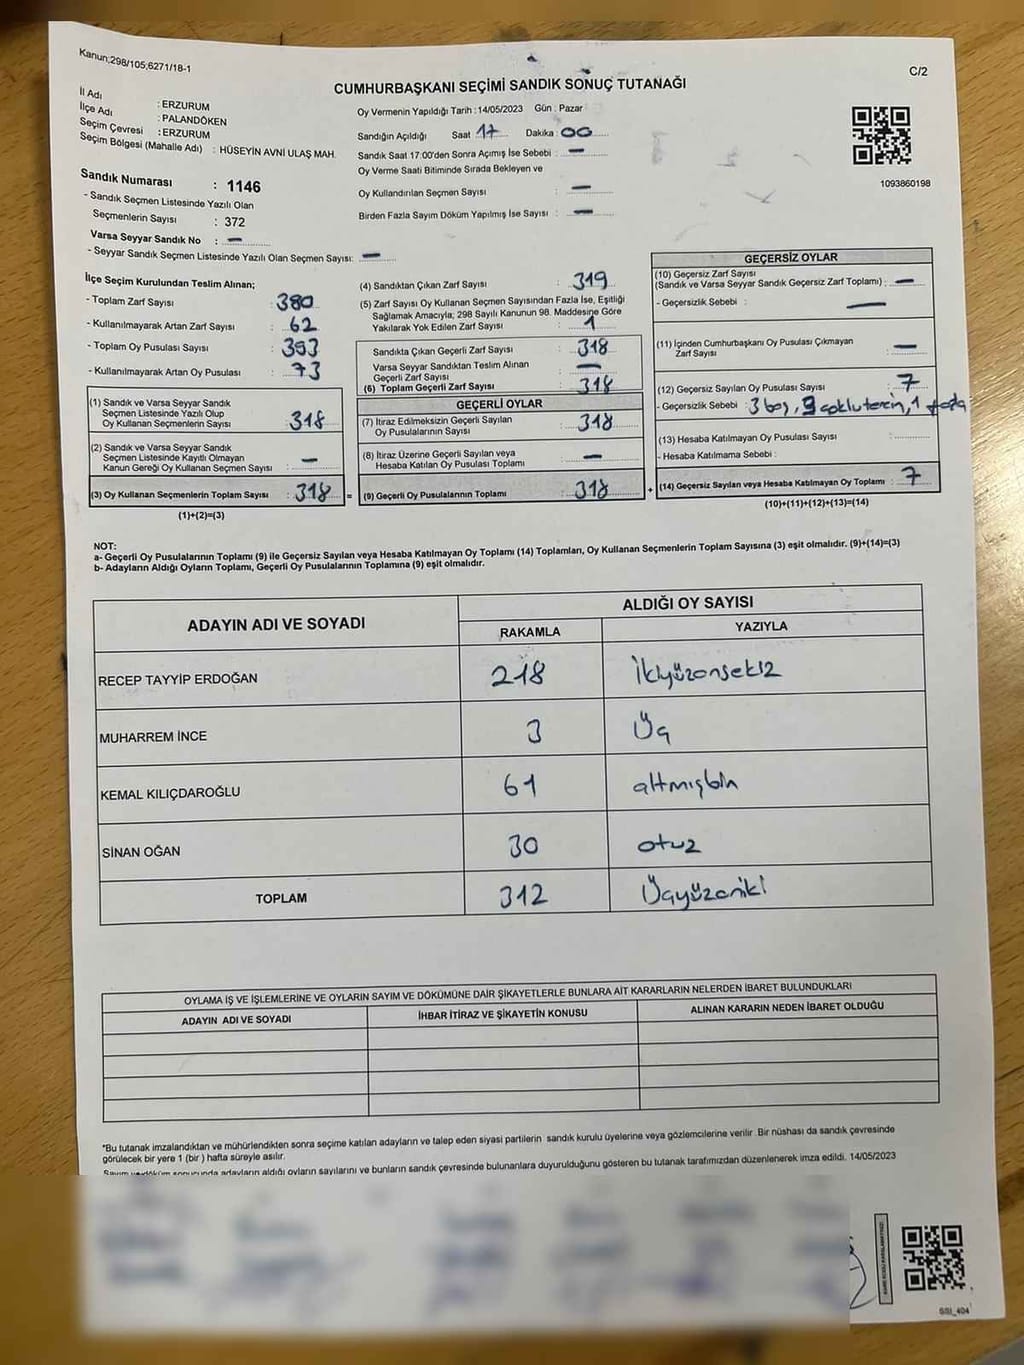 Kanun;298/105,6271/18-1
C/2
CUMHURBAŞKANI SEÇİMİ SANDIK SONUÇ TUTANAĞI
İl Adı : ERZURUM
İlçe Adı : PALANDÖKEN
Seçim Çevresi : ERZURUM
Seçim Bölgesi (Mahalle Adı) : HÜSEYİN AVNİ ULAŞ MAH.
Sandık Numarası : 1146
- Sandık Seçmen Listesinde Yazılı Olan
Seçmenlerin Sayısı : 372
Varsa Seyyar Sandık No : —
- Seyyar Sandık Seçmen Listesinde Yazılı Olan Seçmen Sayısı: —
Oy Vermenin Yapıldığı Tarih : 14/05/2023 Gün : Pazar
Sandığın Açıldığı Saat 17 Dakika : 00
Sandık Saat 17:00'den Sonra Açımış İse Sebebi : —
Oy Verme Saati Bitiminde Sırada Bekleyen ve
Oy Kullandırılan Seçmen Sayısı : —
Birden Fazla Sayım Döküm Yapılmış İse Sayısı : —
1093860198
İlçe Seçim Kurulundan Teslim Alınan;
- Toplam Zarf Sayısı : 380
- Kullanılmayarak Artan Zarf Sayısı : 62
- Toplam Oy Pusulası Sayısı : 393
- Kullanılmayarak Artan Oy Pusulası : 73
(1) Sandık ve Varsa Seyyar Sandık
Seçmen Listesinde Yazılı Olup
Oy Kullanan Seçmenlerin Sayısı : 318
(2) Sandık ve Varsa Seyyar Sandık
Seçmen Listesinde Kayıtlı Olmayan
Kanun Gereği Oy Kullanan Seçmen Sayısı : —
(3) Oy Kullanan Seçmenlerin Toplam Sayısı : 318 =
(1)+(2)=(3)
(4) Sandıktan Çıkan Zarf Sayısı : 319
(5) Zarf Sayısı Oy Kullanan Seçmen Sayısından Fazla İse, Eşitliği
Sağlamak Amacıyla; 298 Sayılı Kanunun 98. Maddesine Göre
Yakılarak Yok Edilen Zarf Sayısı : 1
Sandıkta Çıkan Geçerli Zarf Sayısı : 318
Varsa Seyyar Sandıktan Teslim Alınan
Geçerli Zarf Sayısı : —
(6) Toplam Geçerli Zarf Sayısı : 318
GEÇERLİ OYLAR
(7) İtiraz Edilmeksizin Geçerli Sayılan
Oy Pusulalarının Sayısı : 318
(8) İtiraz Üzerine Geçerli Sayılan veya
Hesaba Katılan Oy Pusulası Toplamı : —
(9) Geçerli Oy Pusulalarının Toplamı : 318 +
GEÇERSİZ OYLAR
(10) Geçersiz Zarf Sayısı
(Sandık ve Varsa Seyyar Sandık Geçersiz Zarf Toplamı) : —
- Geçersizlik Sebebi : —
(11) İçinden Cumhurbaşkanı Oy Pusulası Çıkmayan
Zarf Sayısı : —
(12) Geçersiz Sayılan Oy Pusulası Sayısı : 7
- Geçersizlik Sebebi : 3 boş, 1
(13) Hesaba Katılmayan Oy Pusulası Sayısı :
- Hesaba Katılmama Sebebi :
(14) Geçersiz Sayılan veya Hesaba Katılmayan Oy Toplamı : 7
(10)+(11)+(12)+(13)=(14)
NOT:
a- Geçerli Oy Pusulalarının Toplamı (9) ile Geçersiz Sayılan veya Hesaba Katılmayan Oy Toplamı (14) Toplamları, Oy Kullanan Seçmenlerin Toplam Sayısına (3) eşit olmalıdır. (9)+(14)=(3)
b- Adayların Aldığı Oyların Toplamı, Geçerli Oy Pusulalarının Toplamına (9) eşit olmalıdır.
ADAYIN ADI VE SOYADI
ALDIĞI OY SAYISI
RAKAMLA YAZIYLA
RECEP TAYYİP ERDOĞAN 218 ikiyüzonsekiz
MUHARREM İNCE 3 Üç
KEMAL KILIÇDAROĞLU 61 altmışbir
SİNAN OĞAN 30 otuz
TOPLAM 312 Üçyüzoniki
OYLAMA İŞ VE İŞLEMLERİNE VE OYLARIN SAYIM VE DÖKÜMÜNE DAİR ŞİKAYETLERLE BUNLARA AİT KARARLARIN NELERDEN İBARET BULUNDUKLARI
ADAYIN ADI VE SOYADI İHBAR İTİRAZ VE ŞİKAYETİN KONUSU ALINAN KARARIN NEDEN İBARET OLDUĞU
*Bu tutanak imzalandıktan ve mühürlendikten sonra seçime katılan adayların ve talep eden siyasi partilerin sandık kurulu üyelerine veya gözlemcilerine verilir. Bir nüshası da sandık çevresinde
görülecek bir yere 1 (bir ) hafta süreyle asılır.
Sayım ve döküm sonucunda adayların aldığı oyların sayılarını ve bunların sandık çevresinde bulunanlara duyurulduğunu gösteren bu tutanak tarafımızdan düzenlenerek imza edildi. 14/05/2023
SSI_404